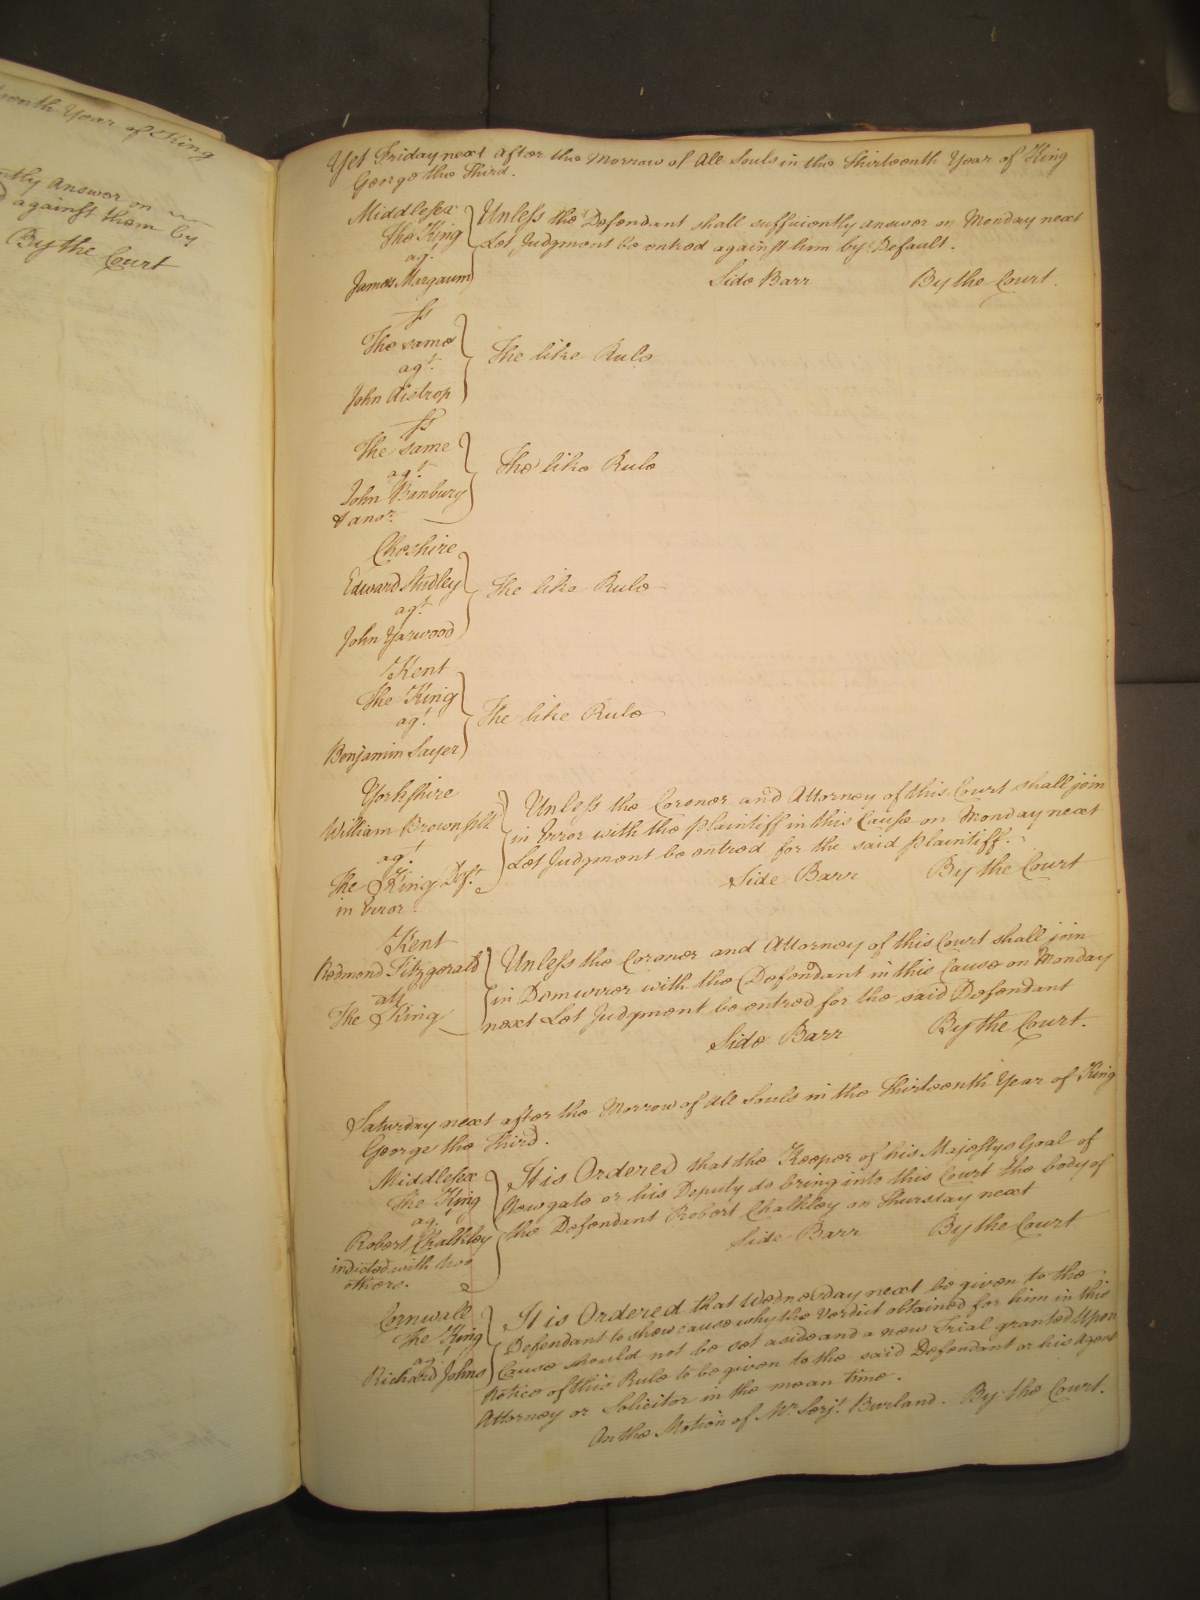 onth Year of King
ntly Answer on
d against them by
By the Court
Yet Friday next After the Morrow of All Souls in the Thirteenth Year of King
George the Third.
Middlesex
The King
agt.
James Margaum
Unless the Defendant shall sufficiently answer on Monday next
Let Judgment be entred against him by Default.
Side Barr By the Court.
ss
The same
agt.
John Aistrop
The like Rule
ss
The same
agt.
John Banbury
& anor.
The like Rule
Cheshire
Edward Studley
agt.
John Yarwood
The like Rule
Kent
The King
agt.
Benjamin Sayer
The like Rule
Yorkshire
William Brown
agt.
The King Deft.
in Error
Unless the Coroner and Attorney of this Court shall join
in Error with the Plaintiff in this Cause on Monday next
Let Judgment be entred for the said Plaintiff.
Side Barr By the Court
Kent
Redmond Fitzgerald
ats
The King
Unless the Coroner and Attorney of this Court shall join
in Demurrer with the Defendant in this Cause on Monday
next Let Judgment be entred for the said Defendant
Side Barr By the Court.
Saturday next after the Morrow of All Souls in the Thirteenth Year of King
George the Third.
Middlesex
The King
agt.
Robert Chalkley
indicted with two
others.
It is Ordered that the Keeper of his Majestys Goal of
Newgate or his Deputy do bring into this Court the body of
the Defendant Robert Chalkley on Thursday next
Side Barr By the Court
Cornwall
The King
agt.
Richard Johns
It is Ordered that Wednesday next be given to the
Defendant to shew cause why the Verdict obtained for him in this
Cause should not be set aside and a new Trial granted Upon
Notice of this Rule to be given to the said Defendant or his Agent
Attorney or Solicitor in the mean time.
On the Motion of Mr. Serjt. Burland. By the Court.